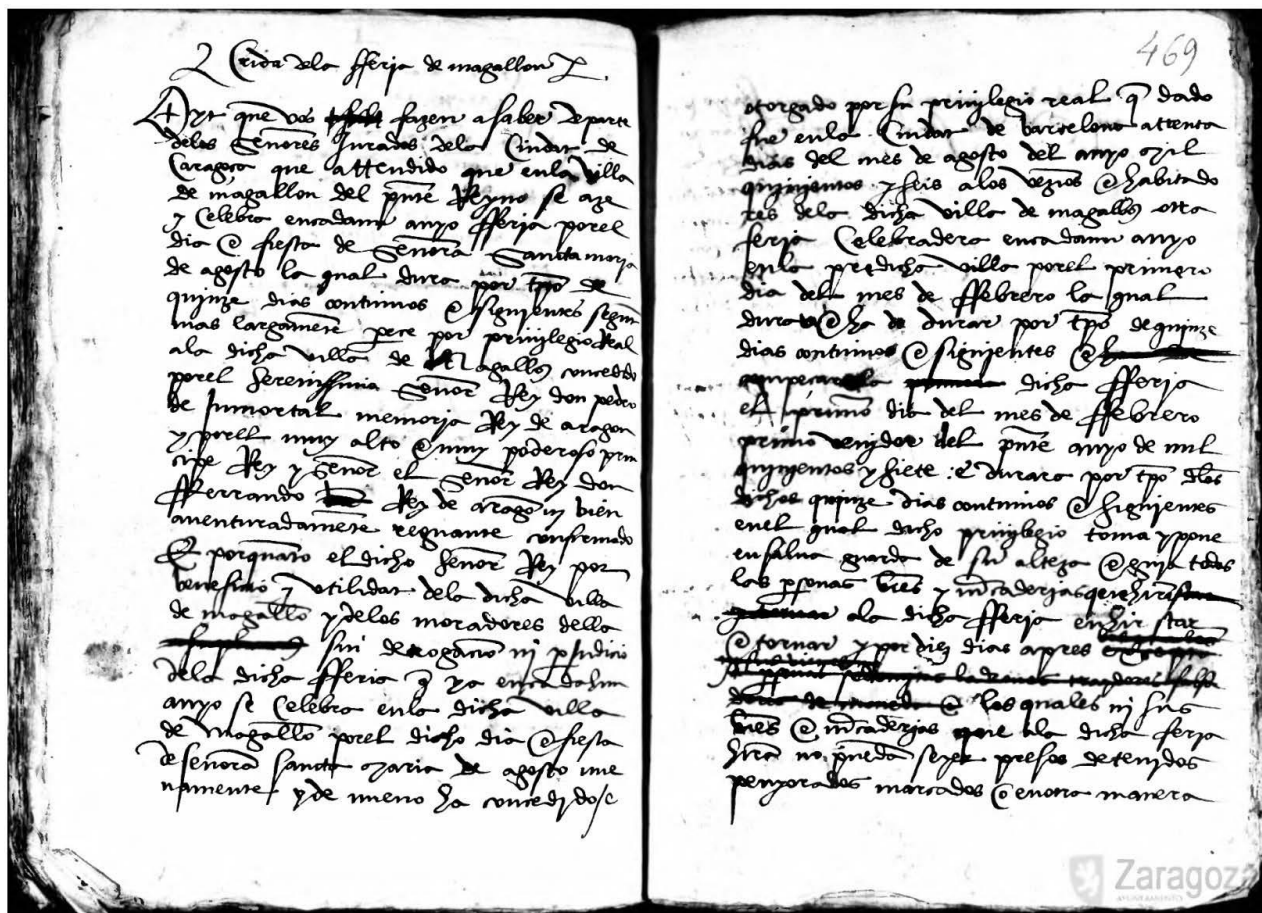 Crida dela fferia de magallon
Oyt que vos fazen a saber de parte
delos Senyores Jurados dela Ciudat de
Caragoca que attendido que enla villa
de magallon del pnte Reyno se aze
y Celebra encadaun anyo fferia porel
dia e fiesta de Senyora Sancta maria
de agosto la qual dura por tpo de
quinze dias continuos e siguientes segun
mas largamente pece por priuilegio Real
ala dicha villa de Magallon concedido
porel Serenissimo Senyor Rey don pedro
de Inmortal memoria Rey de aragon
y porel muy alto e muy poderoso prin
cipe Rey y Senyor el Senyor Rey don
fferrando Rey de aragon bien
auenturadamente regnante confirmado
E porquanto el dicho Senyor Rey por
beneficio y utilidat dela dicha villa
de magallon y delos moradores della
sin derogacion ni pjudicio
dela dicha fferia q ya encadahun
anyo se Celebra enla dicha villa
de Magallon porel dicho dia e fiesta
de Senyora Sancta Maria de agosto nue
uamente y de nueuo ha concedido e
469
otorgado por su priuilegio real q dado
fue enla Ciudat de barcelona a trenta
dias del mes de agosto del anyo Mil
quinientos y seis alos vezinos e habitado
res dela dicha villa de magallon otra
feria Celebradera encadaun anyo
enla predicha villa porel primero
dia del mes de ffebrero la qual
dura e ha de durar por tpo de quinze
dias continuos e siguientes e
empecara la dicha fferia
el primero dia del mes de ffebrero
primo venidor del pnte anyo de mil
quinientos y siete e durara por tpo dlos
dichos quinze dias continuos e siguientes
enel qual dicho priuilegio toma y pone
en salua guarda de su alteza e guia todas
las psonas bies y mcaderias que hiran
ala dicha fferia en hir star
e tornar y por diez dias apres
los quales ni sus
bies e mcaderias que ala dicha feria
hiran no puedan seyer presos detenidos
penyorados marcados o en otra manera
Zaragoza
AYUNTAMIENTO